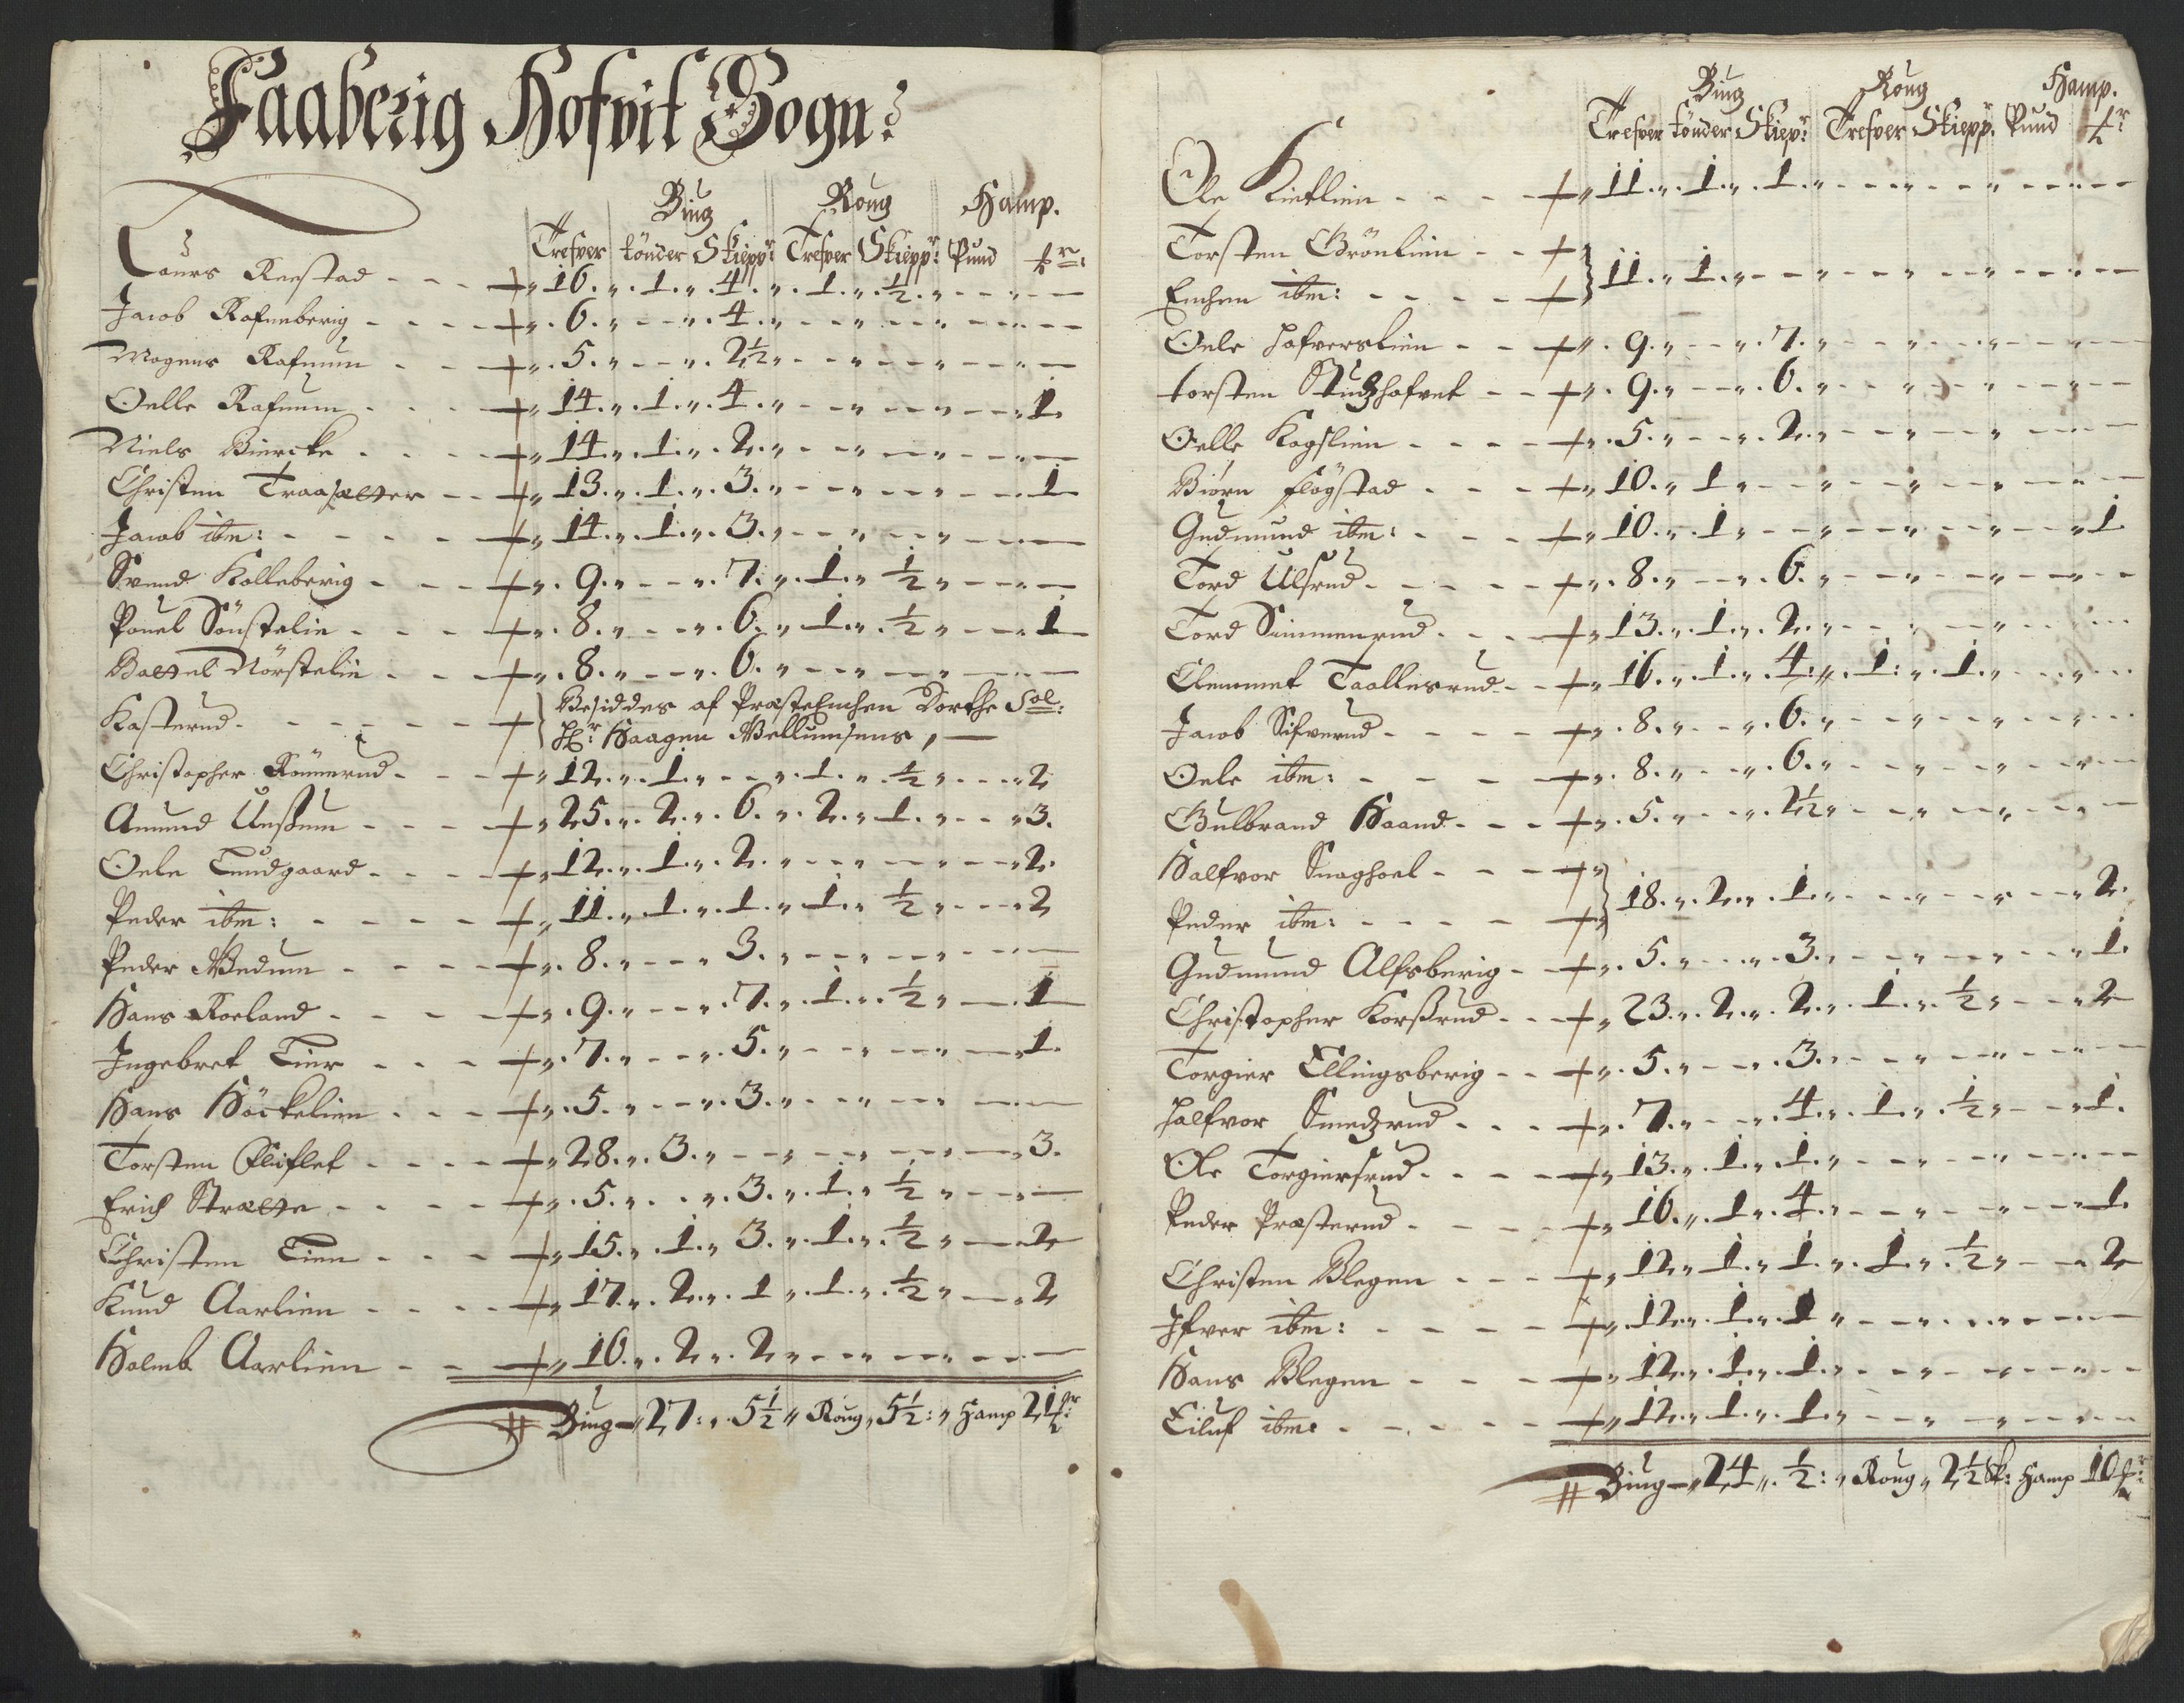 Faaberig Hofvit Sogn:
Biug Roug Hamp.
Trefver tönder Skiepp: Trefver Skiepp: Pund ℔r:
Laurs Reestad - - - 16. 1. 4. 1. ½. - -
Jacob Rafneberig - - - 6. - 4. - - -
Mogens Rafnum - - 5. - 2½ - - -
Oelle Rafnum - - - 14. 1. 4. - - - 1.
Niels Biercke - - - 14. 1. 2. - - -
Christen Traasætter - - 13. 1. 3. - - - 1
Jacob ibm: - - - - 14. 1. 3. - - -
Svend Kolleberig - - - 9. - 7. 1. ½ - -
Pouel Sönstelie - - - 8. - 6. 1. ½ - 1
Baltzel Nörstelie - - - 8. - 6. - - -
Kasterud - - - - Besiddes af Præsteenchen Dorthe Sal:
Hr: Haagen Mellumsens, -
Christopher Rönnerud - - - 12. 1. - 1. ½ - 2
Amund Unßum - - - 25. 2. 6. 2. 1. - 3.
Oele Lundgaard - - - 12. 1. 2. - - - 2.
Peder ibm: - - - - 11. 1. 1. 1. ½ - 2
Peder Medum - - - - 8. - 3. - - -
Hans Roeland - - - - 9. - 7. 1. ½ - 1
Ingebret Lier - - - 7. - 5. - - - 1.
Hans Höckelien - - - 5. - 3. - - -
Torsten Fliflet - - - - 28. 3. - - - - 3.
Erich Strætte - - - - 5. - 3. 1. ½ - -
Christen Lien - - - 15. 1. 3. 1. ½ - 2
Knud Aarlien - - - - 17. 2. 1 1. ½ - 2
Holmb. Aarlien - - - 16. 2. 2 - - -
Biug - 27: 5½ Roug 5½: Hamp 21 ℔r:
Biug Roug Hamp.
Trefver tönder Skiepr: Trefver Skiepp. Pund ℔r:
Ole Kietlien - - - - 11. 1. 1. - - -
Torsten Grönlien - - 11. 1. - - - -
Enchen ibm: - - - -
Oele Hafverslien - - 9. - 7. - - -
torsten Stuchhafvet - - 9. - 6. - - -
Oelle Kogslien - - - - 5. - 2. - - -
Biörn Flögstad - - - 10. 1 - - - -
Gudmund ibm: - - - 10. 1 - - - - 1
Tord Ulsrud - - - - 8. - 6. - - -
Tord Simmenrud - - - 13. 1. 2. - - -
Clemmet Taallesrud - - 16. 1. 4. 1. 1. - -
Jacob Sifverud - - - - 8. - 6. - - -
Oele ibm: - - - - 8. - 6. - - -
Gulbrand Haand - - - 5. - 2½ - - -
Halfvor Snaghoel - - - 18. 2. 1. - - - 2.
Peder ibm: - - - -
Gudmund Alfsberig - - 5. - 3. - - - 1.
Christopher Korßrud - - 23. 2. 2. 1. ½ - 2
Torgier Ellingsberig - - 5. - 3. - - -
Halfvor Smedzrud - - - 7. - 4. 1. ½ - 1.
Ole Torgiersrud - - - - 13. 1. 1. - - -
Peder Præsterud - - - - 16. 1. 4. - - - 1.
Christen Blegen - - - 12. 1. 1. 1. ½ - 2
Ifver ibm: - - - - 12. 1. 1 - - -
Hans Blegen - - - 12. 1. 1. - - -
Eiluf ibm: - - - - 12. 1. 1. - - -
Biug - 24. ½: Roug 2½ Sk: Hamp 10 ℔r: